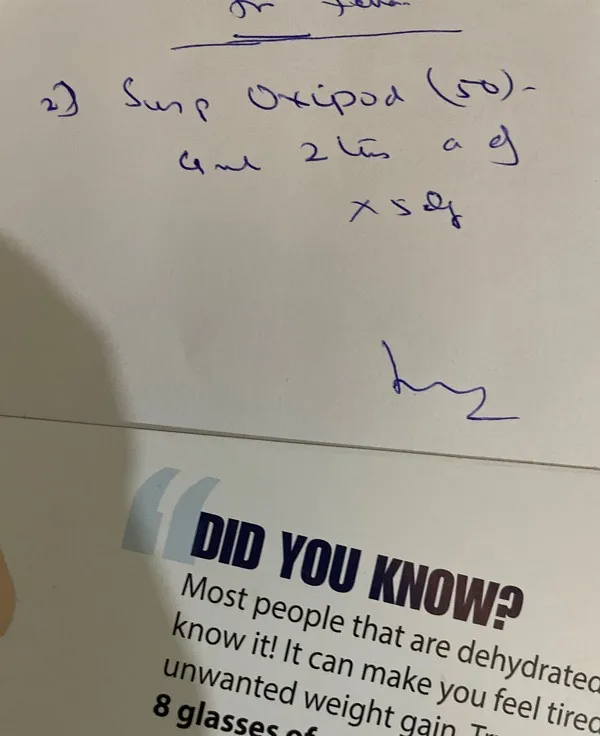 for fever
2) Susp Oxipod (50) -
4ml 2 times a dy
x 5 dy
DID YOU KNOW?
Most people that are dehydrated
know it! It can make you feel tired
unwanted weight gain. Tr
8 glasses of